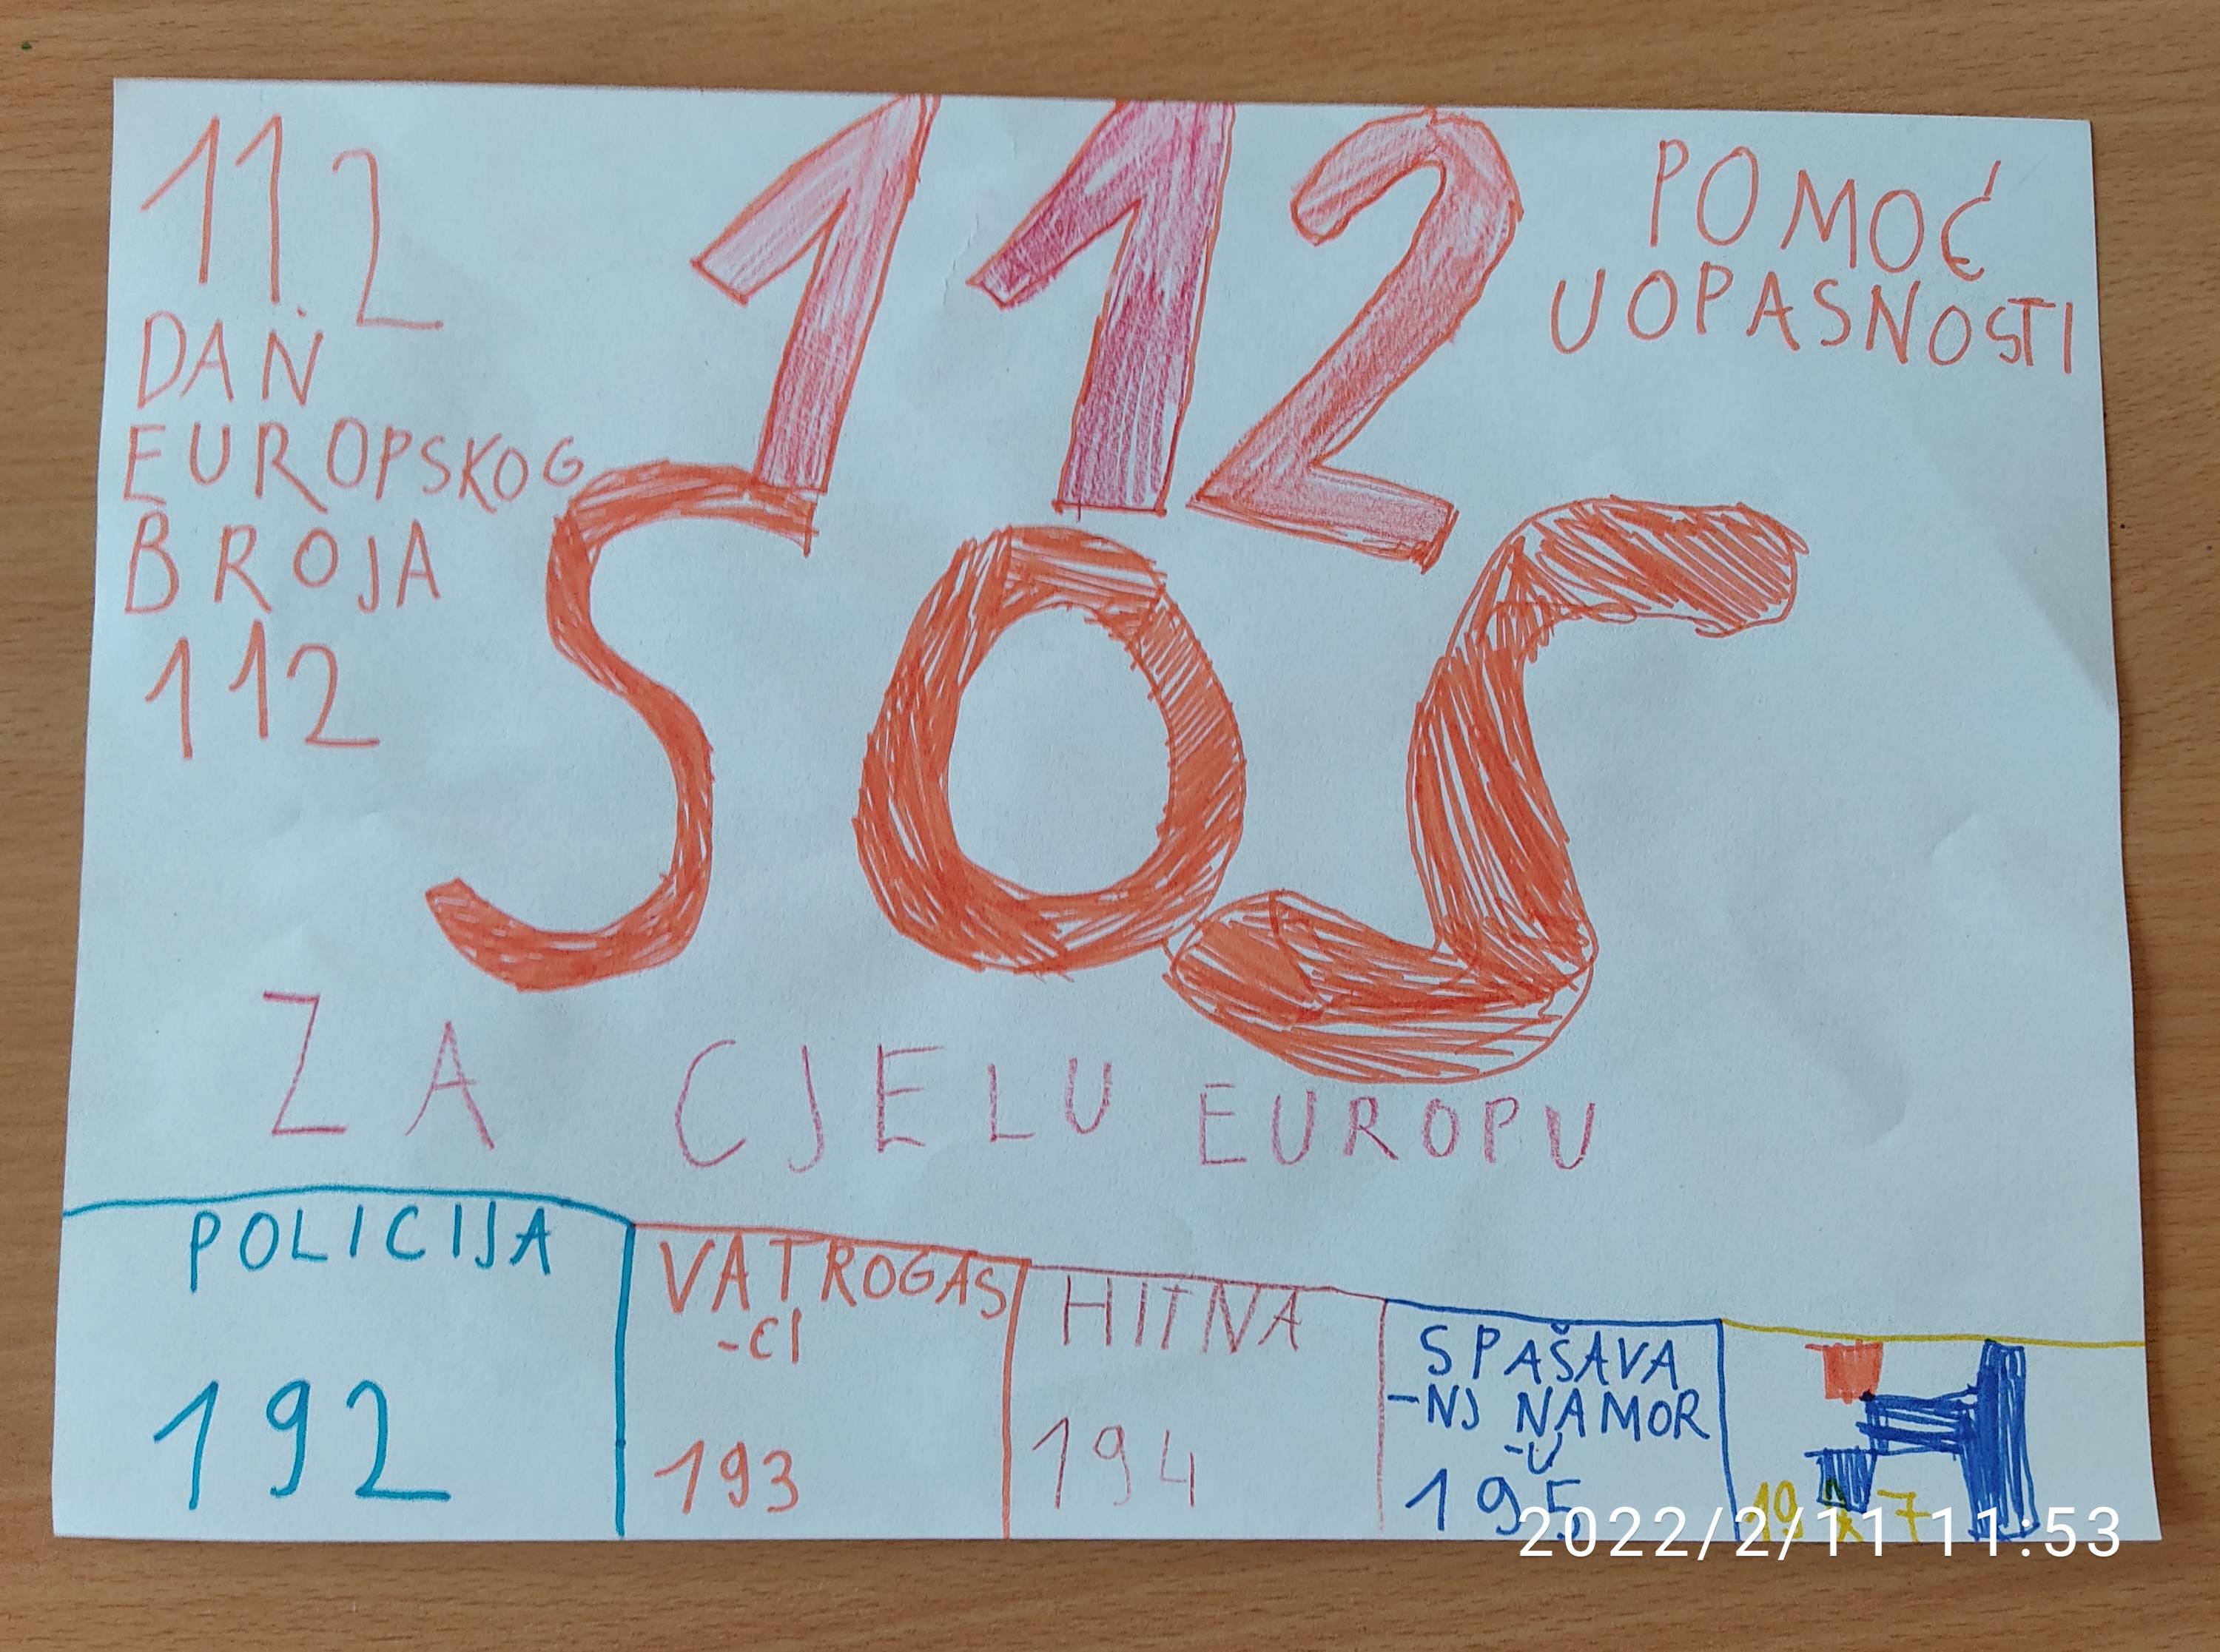 11.2
DAN
EUROPSKOG
BROJA
112
112
SOS
POMOĆ
U OPASNOSTI
ZA CJELU EUROPU
POLICIJA
192
VATROGAS
-CI
193
HITNA
194
SPAŠAVA
-NJ NA MOR
-U
195
2022/2/11 11:53